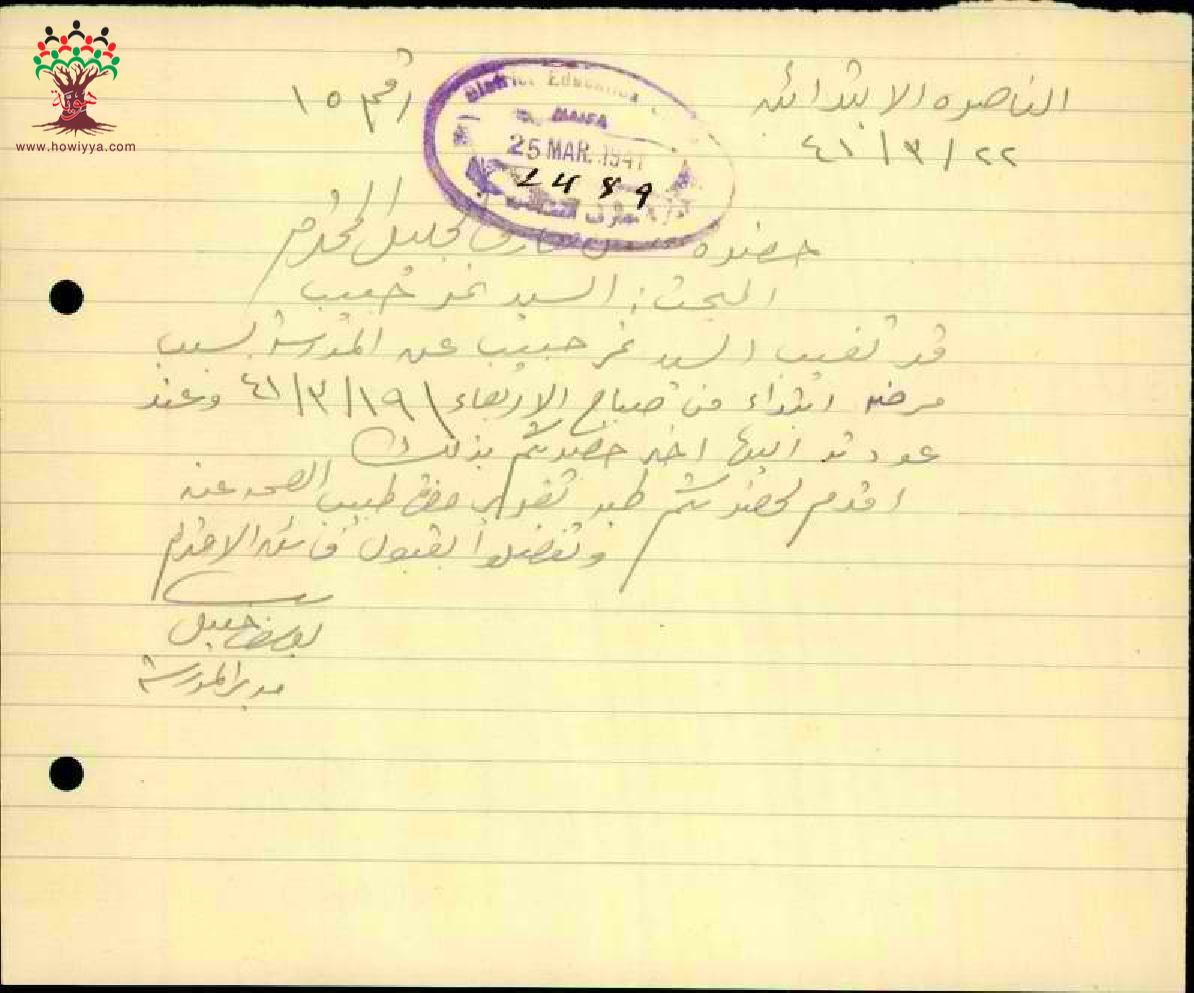 هوية
www.howiyya.com
الناصره الابتدائية
رقم ١٥
٢٢ / ٣ / ٤١
District Education
HAIFA
25 MAR. 1941
2489
حضرة معارف الجليل المحترم
البحث: السيد نمر حبيب
قد تغيب السيد نمر حبيب عن المدرسة بسبب
مرضه ابتداء من صباح الاربعاء ١٩/٣/٤١ وعند
عودته اليها اخبر حضرتكم بذلك
اقدم لحضرتكم طيه تقرير حضرة طبيب الصحه عنه
وتفضلوا بقبول فائق الاحترام
مدير المدرسة